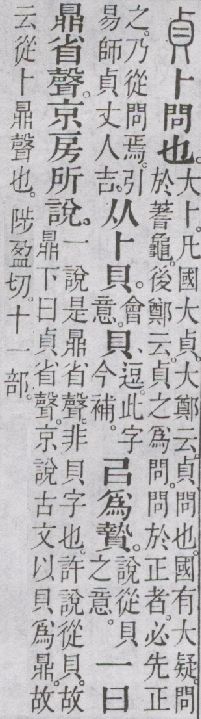 貞卜問也。大卜。凡國大貞。大鄭云。貞、問也。國有大疑。問於蓍龜。後鄭云。貞之爲問。問於正者。必先正
之。乃從問焉。引易師貞丈人吉。从卜貝。會意。貝、逗。此字今補。㠯爲贄。說從貝之意。一曰
鼎省聲。京房所說。一說是鼎省聲。非貝字也。許說從貝。故鼎下曰貞省聲。京說古文以貝爲鼎。故
云從卜鼎聲也。陟盈切。十一部。